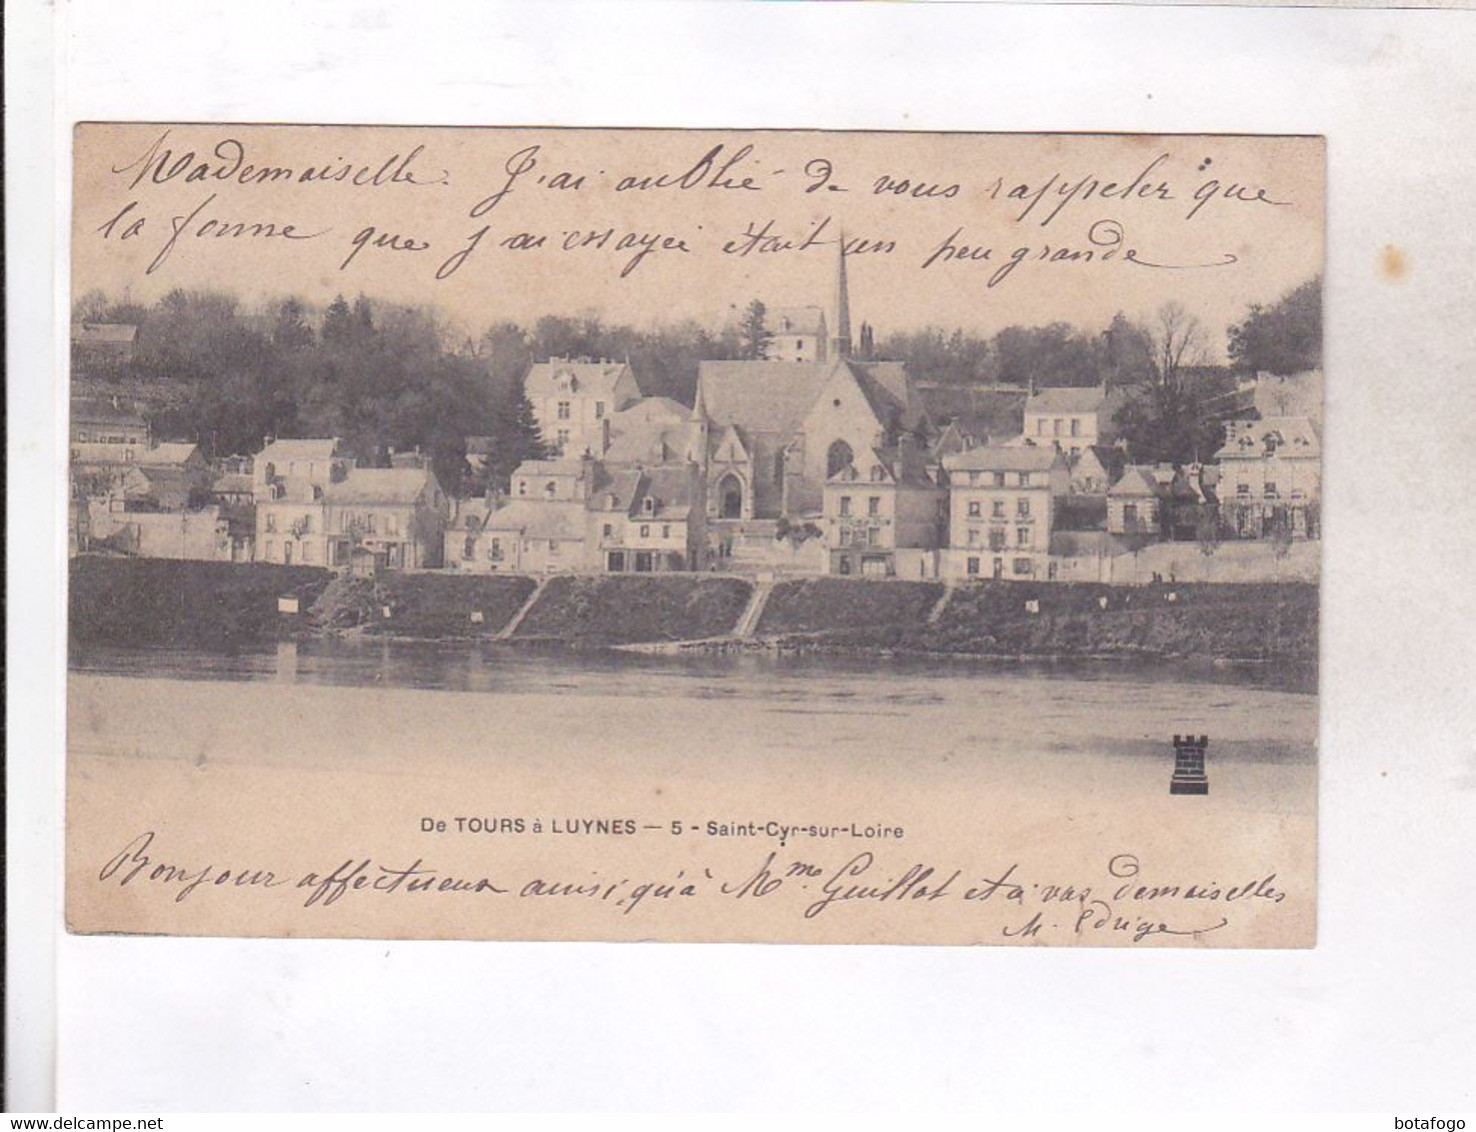 Mademoiselle. J'ai oublié de vous rappeler que
la forme que j'ai essayée était un peu grande
De TOURS à LUYNES — 5 - Saint-Cyr-sur-Loire
Bonjour affectueux ainsi qu'à Mme. Guillot et à vos demoiselles
M. Edrige
www.delcampe.net
botafogo